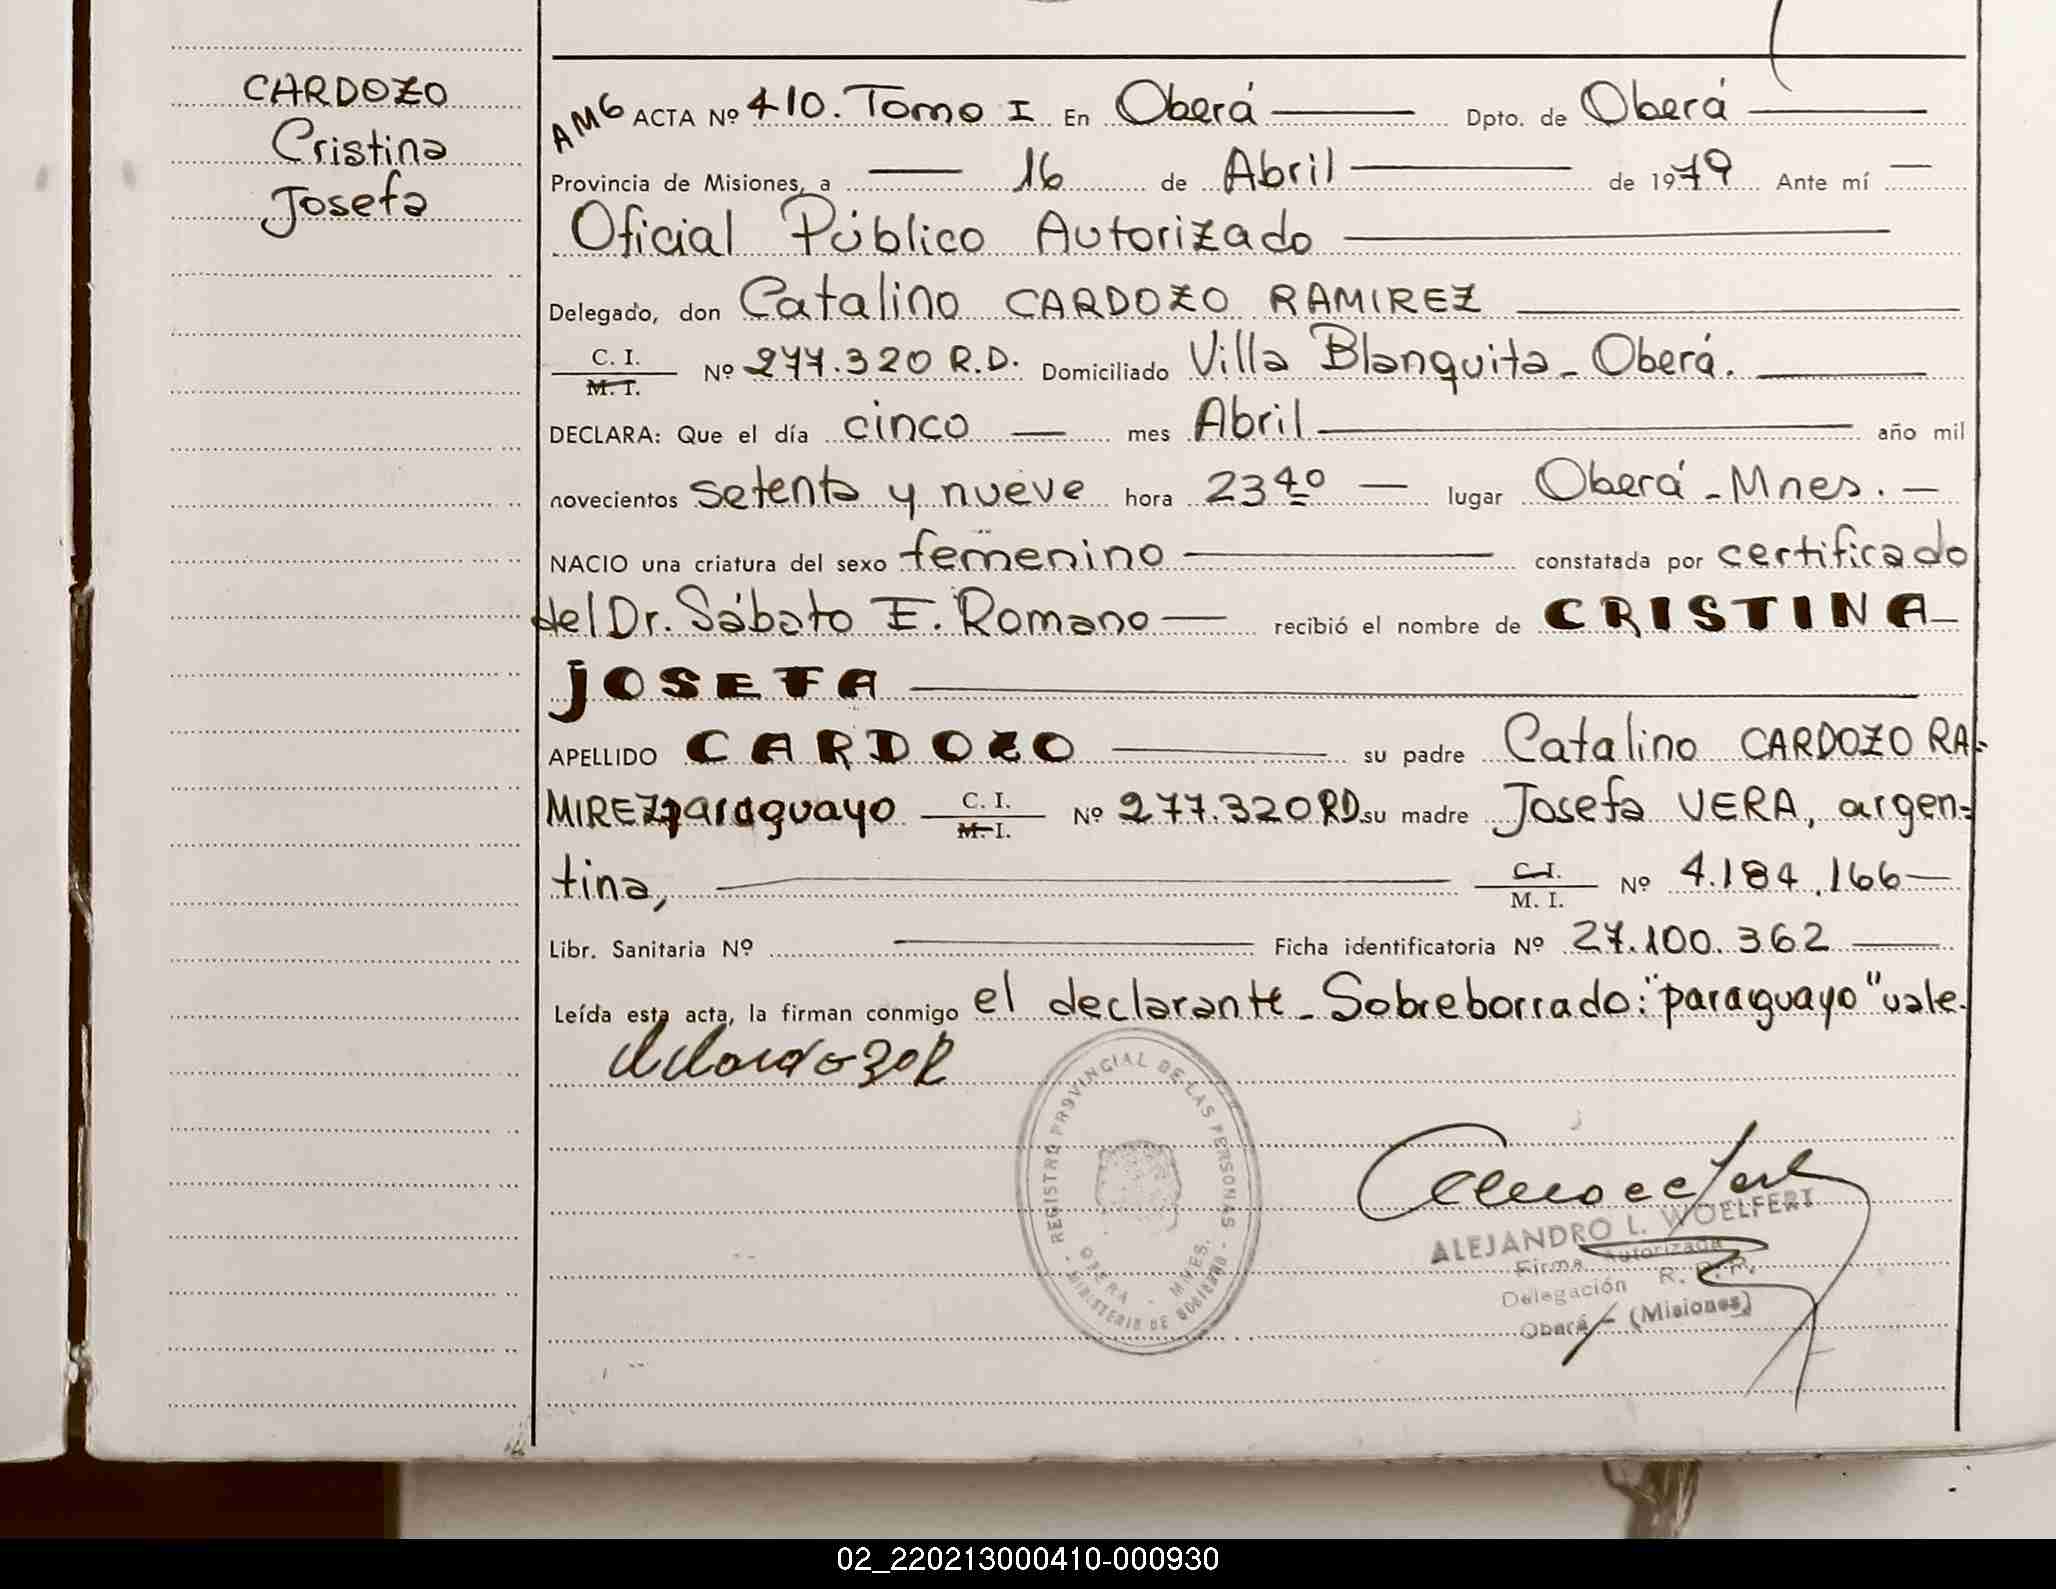 CARDOZO
Cristina
Josefa
AMG ACTA Nº 410. Tomo I En Oberá Dpto. de Oberá
Provincia de Misiones, a 16 de Abril de 1979 Ante mí
Oficial Público Autorizado
Delegado, don Catalino CARDOZO RAMIREZ
C. I. M. I. Nº 277.320 R.D. Domiciliado Villa Blanquita - Oberá.
DECLARA: Que el día cinco mes Abril año mil
novecientos setenta y nueve hora 23 40 lugar Oberá - Mnes.
NACIO una criatura del sexo femenino constatada por certificado
del Dr. Sábato E. Romano recibió el nombre de CRISTINA
JOSEFA
APELLIDO CARDOZO su padre Catalino CARDOZO RA-
MIREZ, paraguayo C. I. M. I. Nº 277.320 RD. su madre Josefa VERA, argen-
tina, C. I. M. I. Nº 4.184.166
Libr. Sanitaria Nº Ficha identificatoria Nº 27.100.362
Leída esta acta, la firman conmigo el declarante - Sobreborrado: "paraguayo" vale.
REGISTRO PROVINCIAL DE LAS PERSONAS
OBERA - MNES.
MINISTERIO DE GOBIERNO
ALEJANDRO L. WOELFERT
Firma Autorizada
Delegación R. P. P.
Oberá - (Misiones)
02_220213000410-000930